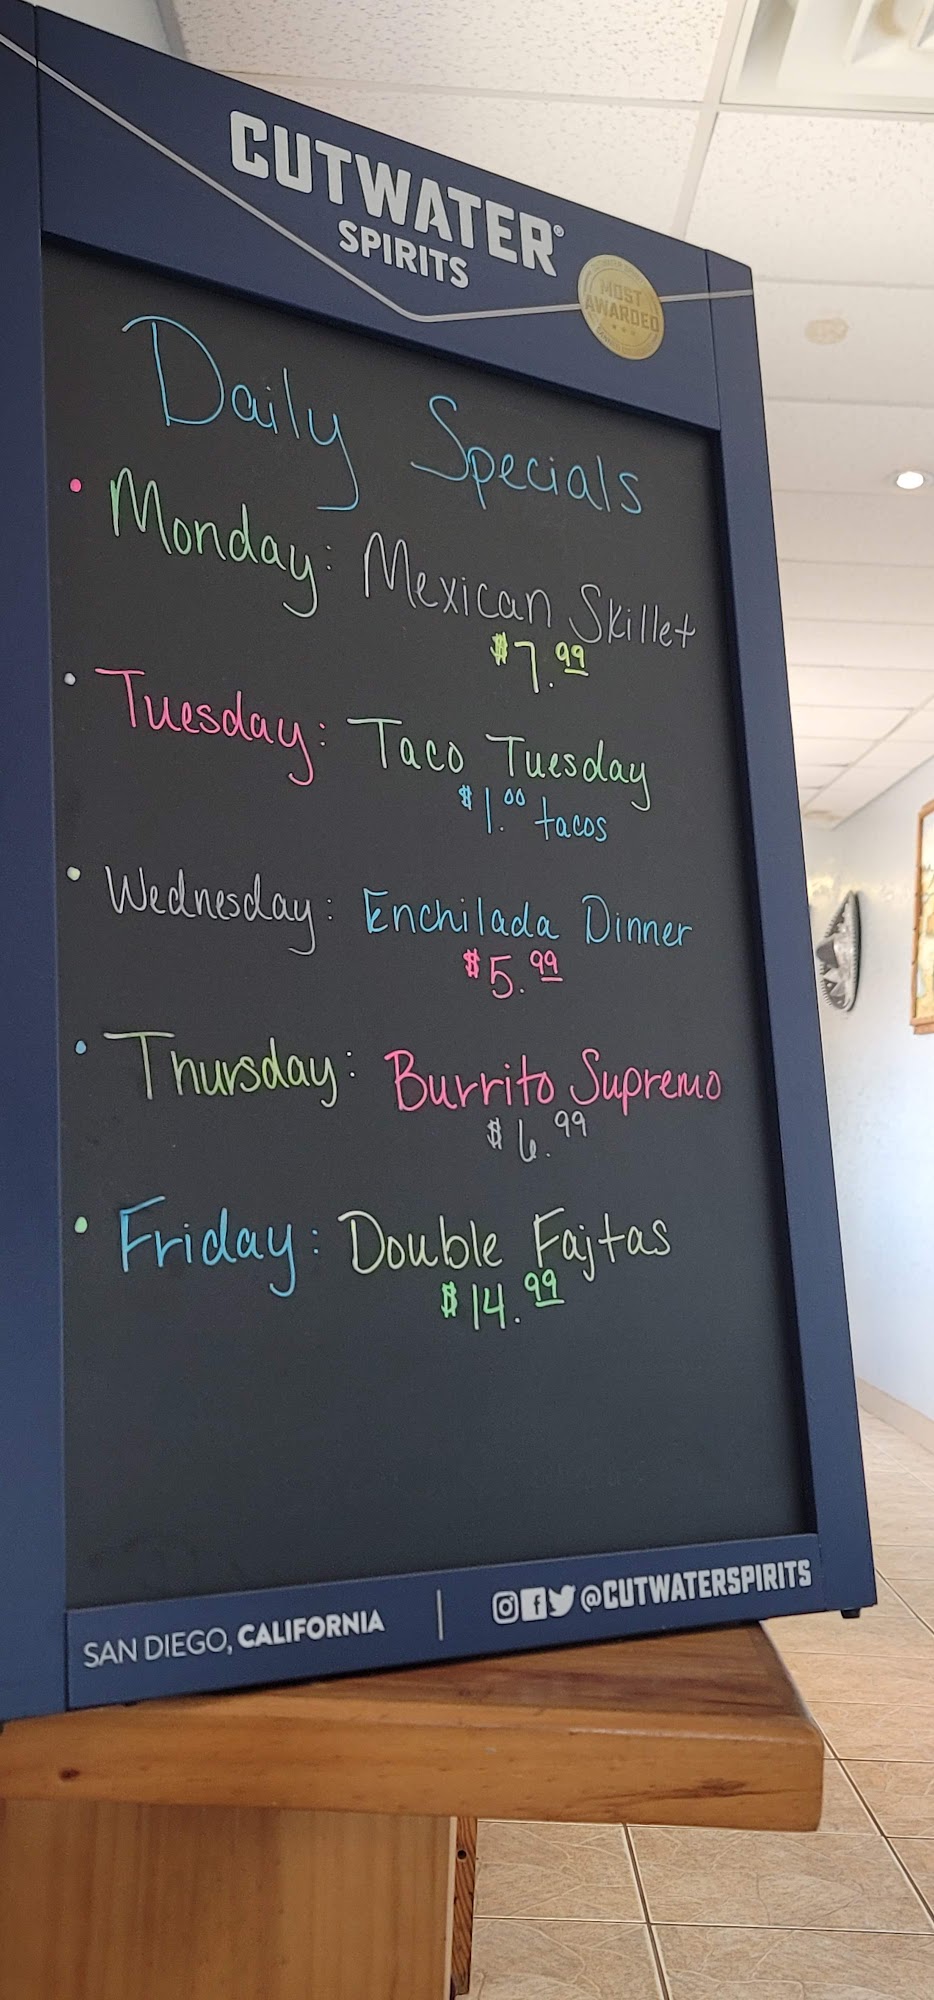 CUTWATER®
SPIRITS
MOST
AWARDED
Daily Specials
• Monday: Mexican Skillet
$7.99
• Tuesday: Taco Tuesday
$1.00 tacos
• Wednesday: Enchilada Dinner
$5.99
• Thursday: Burrito Supremo
$6.99
• Friday: Double Fajtas
$14.99
SAN DIEGO, CALIFORNIA | @CUTWATERSPIRITS